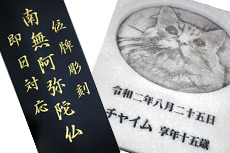 位牌彫刻
南無阿弥陀仏
即日対応
令和二年八月二十五日
チャイム 享年十五歳